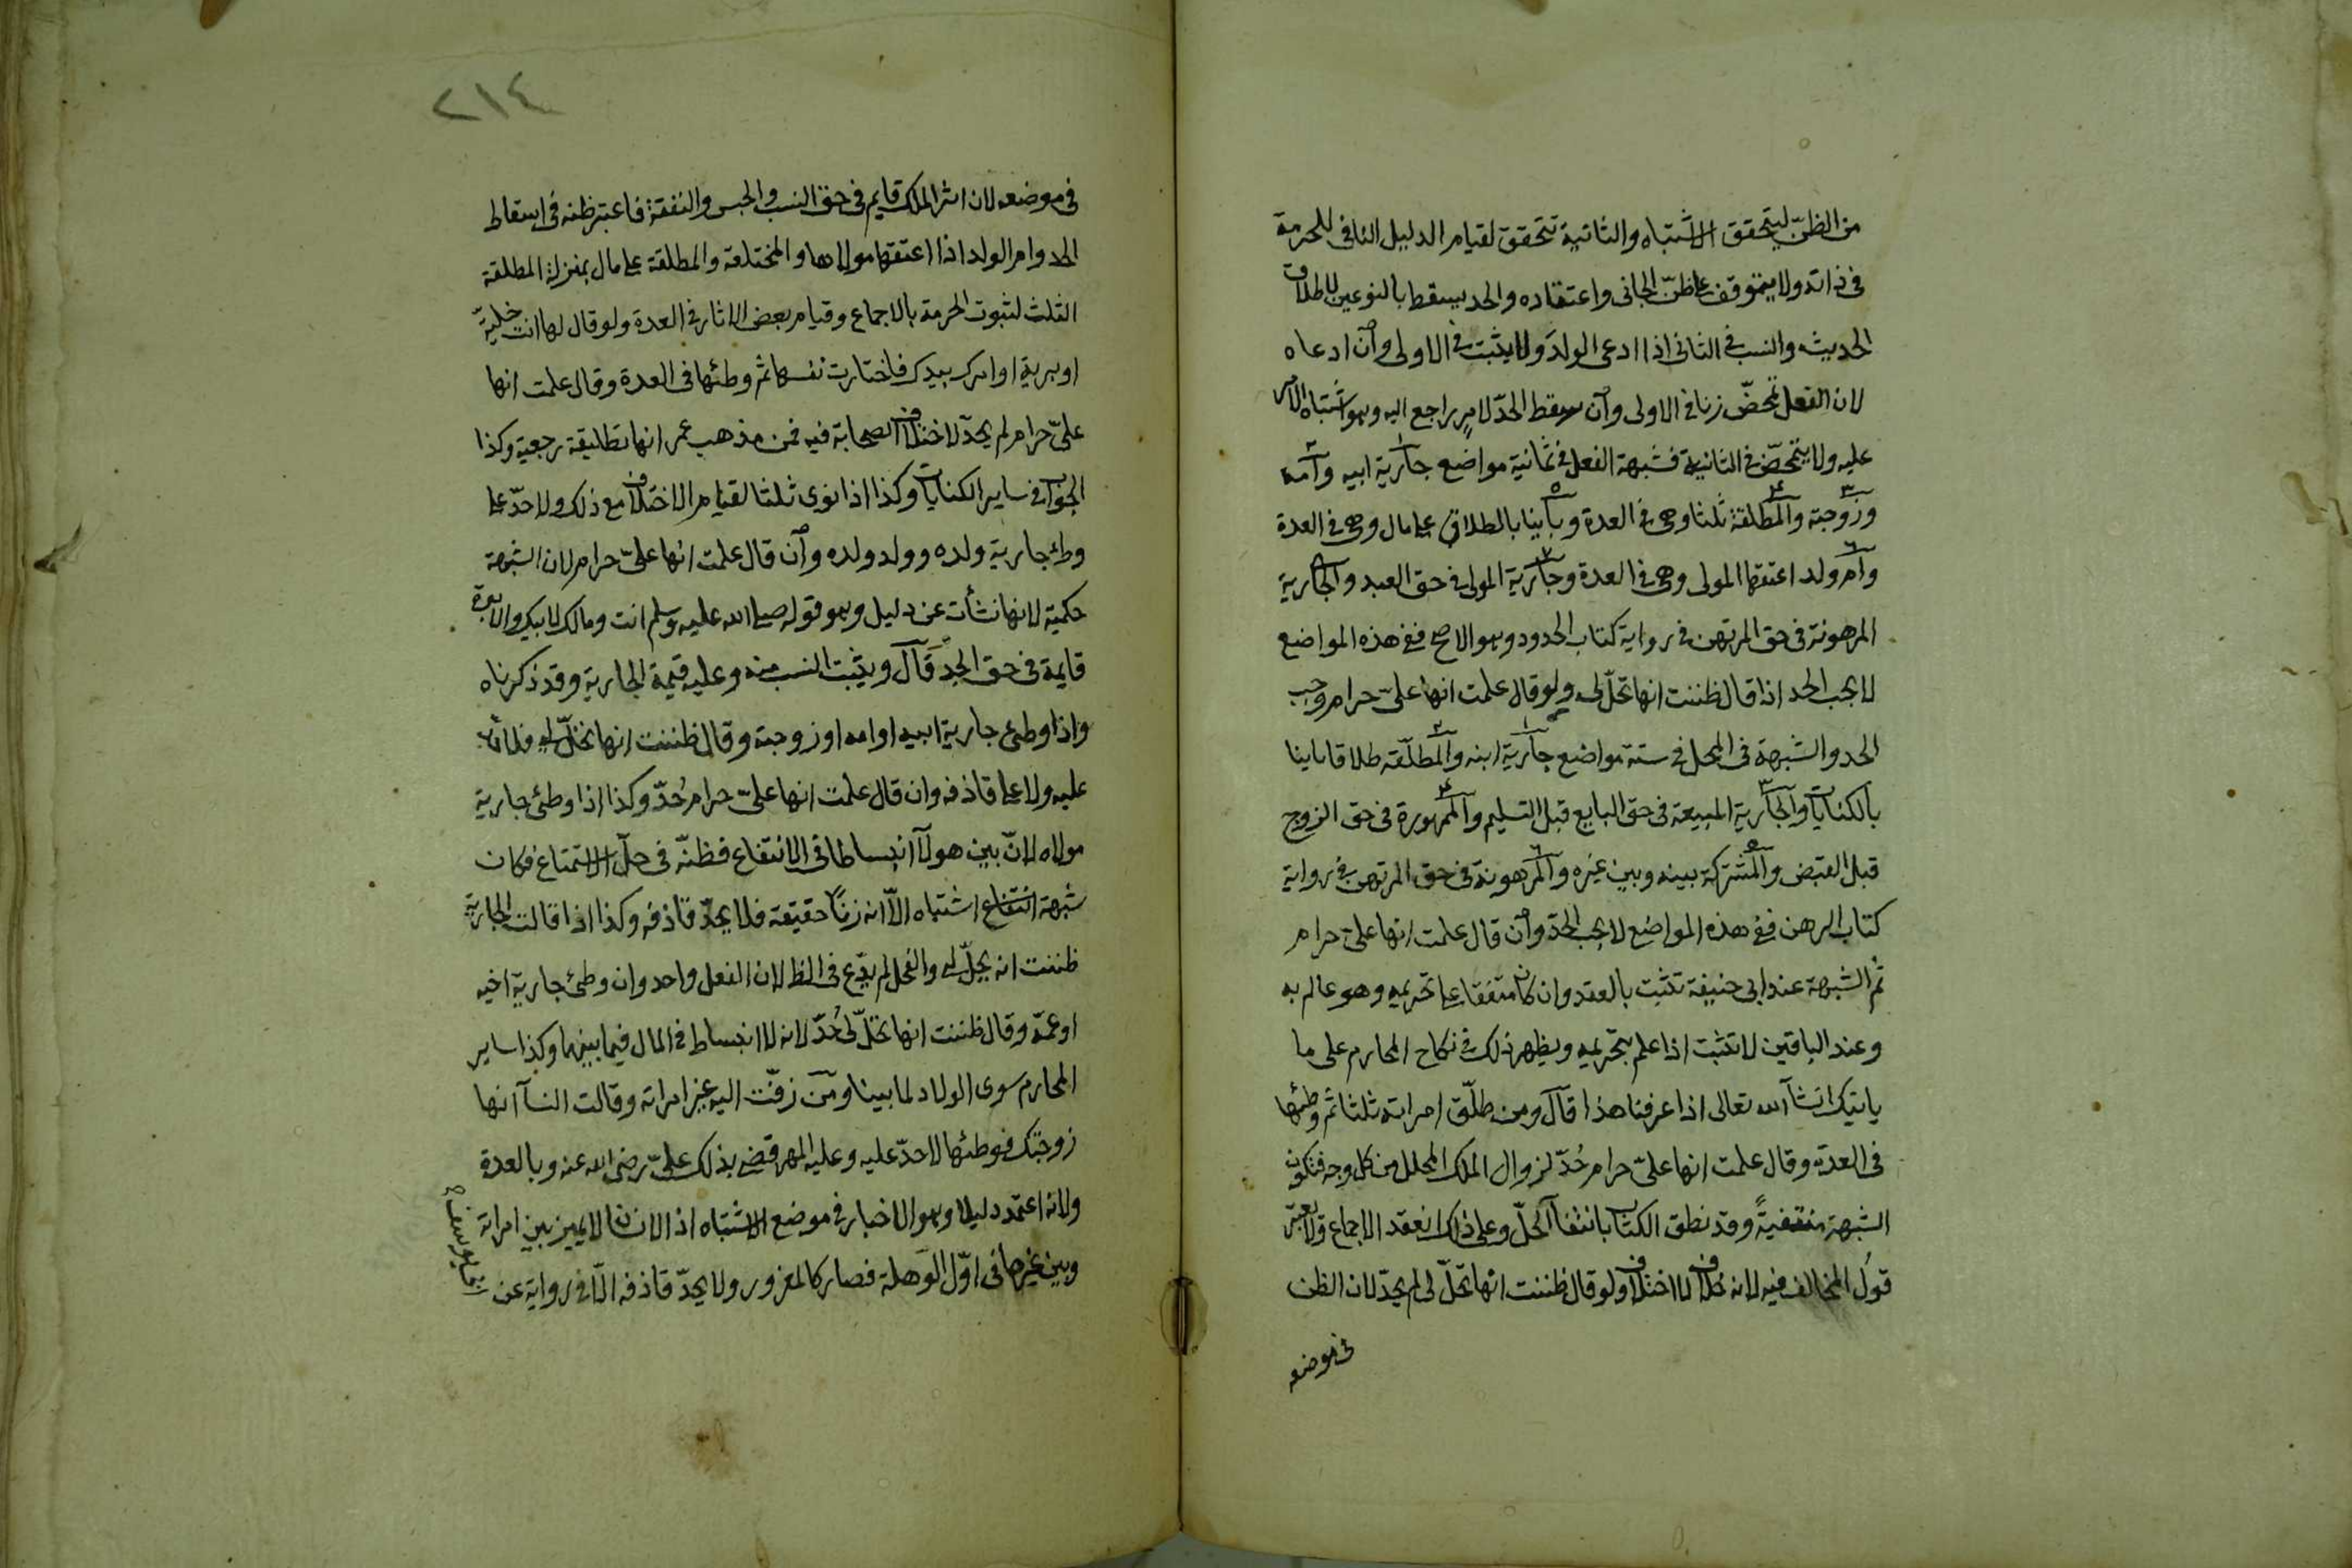 من الظنّ ليتحقق الاشتباه والثانية تتحقق لقيام الدليل النافي للحرمة
في ذاته ولا يتوقف على ظنّ الجاني واعتقاده والحد يسقط بالنوعين لاطلاق
الحديث والنسب في الثاني اذا ادعى الولدَ ولا يثبت في الاولى وان ادعاه
لان الفعل تمحّض زنا في الاولى وان سقط الحدّ لامرٍ راجع اليه وهو اشتباه الامر
عليه ولا يتمحّض في الثانية فشبهة الفعل في ثمانية مواضع جارية ابيه وامه
وزوجته والمطلقة ثلثا وهي في العدة وبائنا بالطلاق على مال وهي في العدة
وام ولد اعتقها المولى وهي في العدة وجارية المولى في حق العبد والجارية
المرهونة في حق المرتهن في رواية كتاب الحدود وهو الاصح ففي هذه المواضع
لا يجب الحد اذا قال ظننت انها تحلّ لي ولو قال علمت انها عليّ حرام وجب
الحد والشبهة في المحل في ستة مواضع جارية ابنه والمطلّقة طلاقا باينا
بالكنايات والجارية المبيعة في حق البايع قبل التسليم والممهورة في حق الزوج
قبل القبض والمشتركة بينه وبين غيره والمرهونة في حق المرتهن في رواية
كتاب الرهن ففي هذه المواضع لا يجب الحدّ وان قال علمت انها عليّ حرام
ثم الشبهة عند ابي حنيفة تثبت بالعقد وان كان متفقا على تحريمه وهو عالم به
وعند الباقين لا تثبت اذا علم بتحريمه ويظهر ذلك في نكاح المحارم على ما
ياتيك انشآ الله تعالى اذا عرفنا هذا قال ومن طلّق امراته ثلثا ثم وطئها
في العدة وقال علمت انها عليّ حرام حُدّ لزوال الملك المحلل من كل وجه فتكون
الشبهة منتفيةً وقد نطق الكتاب بانتفآ الحلّ وعلى ذلك انعقد الاجماع ولا يعتبر
قولُ المخالف فيه لانه خلاف لا اختلاف ولو قال ظننت انها تحلّ لي لم يحدّ لان الظن
في موضعه
٢١٤
في موضعه لان اثر الملك قايم في حق النسب والحبس والنفقة فاعتبر ظنه في اسقاط
الحد وام الولد اذا اعتقها مولاها والمختلعة والمطلقة على مال بمنزلة المطلقة
الثلث لثبوت الحرمة بالاجماع وقيام بعض الاثار في العدة ولو قال لها انت خليّة
او برية او امرك بيدك فاختارت نفسها ثم وطئها في العدة وقال علمت انها
عليّ حرام لم يحدّ لاختلاف الصحابة فيه فمن مذهب عمر انها تطليقة رجعية وكذا
الجواب في ساير الكنايات وكذا اذا نوى ثلثا لقيام الاختلاف مع ذلك ولا حدّ على
وطئ جارية ولده وولد ولده وان قال علمت انها عليّ حرام لان الشبهة
حكمية لانها نشأت عن دليل وهو قوله صلى الله عليه وسلم انت ومالك لابيك والابوة
قايمة في حق الجدّ قال ويثبت النسب منه وعليه قيمة الجارية وقد ذكرناه
واذا وطئ جارية ابيه او امه او زوجته وقال ظننت انها تحلّ لي فلا حدّ
عليه ولا على قاذفه وان قال علمت انها عليّ حرام حُدّ وكذا اذا وطئ جارية
مولاه لانّ بين هولآ انبساطا في الانتفاع فظنّه في حلّ الاستمتاع فكان
شبهة انتفاع اشتباه الاّ انه زناً حقيقة فلا يحدّ قاذفه وكذا اذا قالت الجارية
ظننت انه يحلّ لي والفحل لم يدّع في الظ لان الفعل واحد وان وطئ جارية اخيه
او عمّه وقال ظننت انها تحلّ لي حُدّ لانه لا انبساط في المال فيما بينهما وكذا ساير
المحارم سوى الولاد لما بينا ومن زفّت اليه غير امراته وقالت النسآ انها
زوجتك فوطئها لا حدّ عليه وعليه المهر قضى بذلك عليّ رضى الله عنه وبالعدة
ولانه اعتمد دليلا وهو الاخبار في موضع الاشتباه اذ الانسان لا يميز بين امراته
وبين غيرها في اوّل الوَهلة فصار كالمغرور ولا يحدّ قاذفه الّا في رواية عن
ابي يوسف